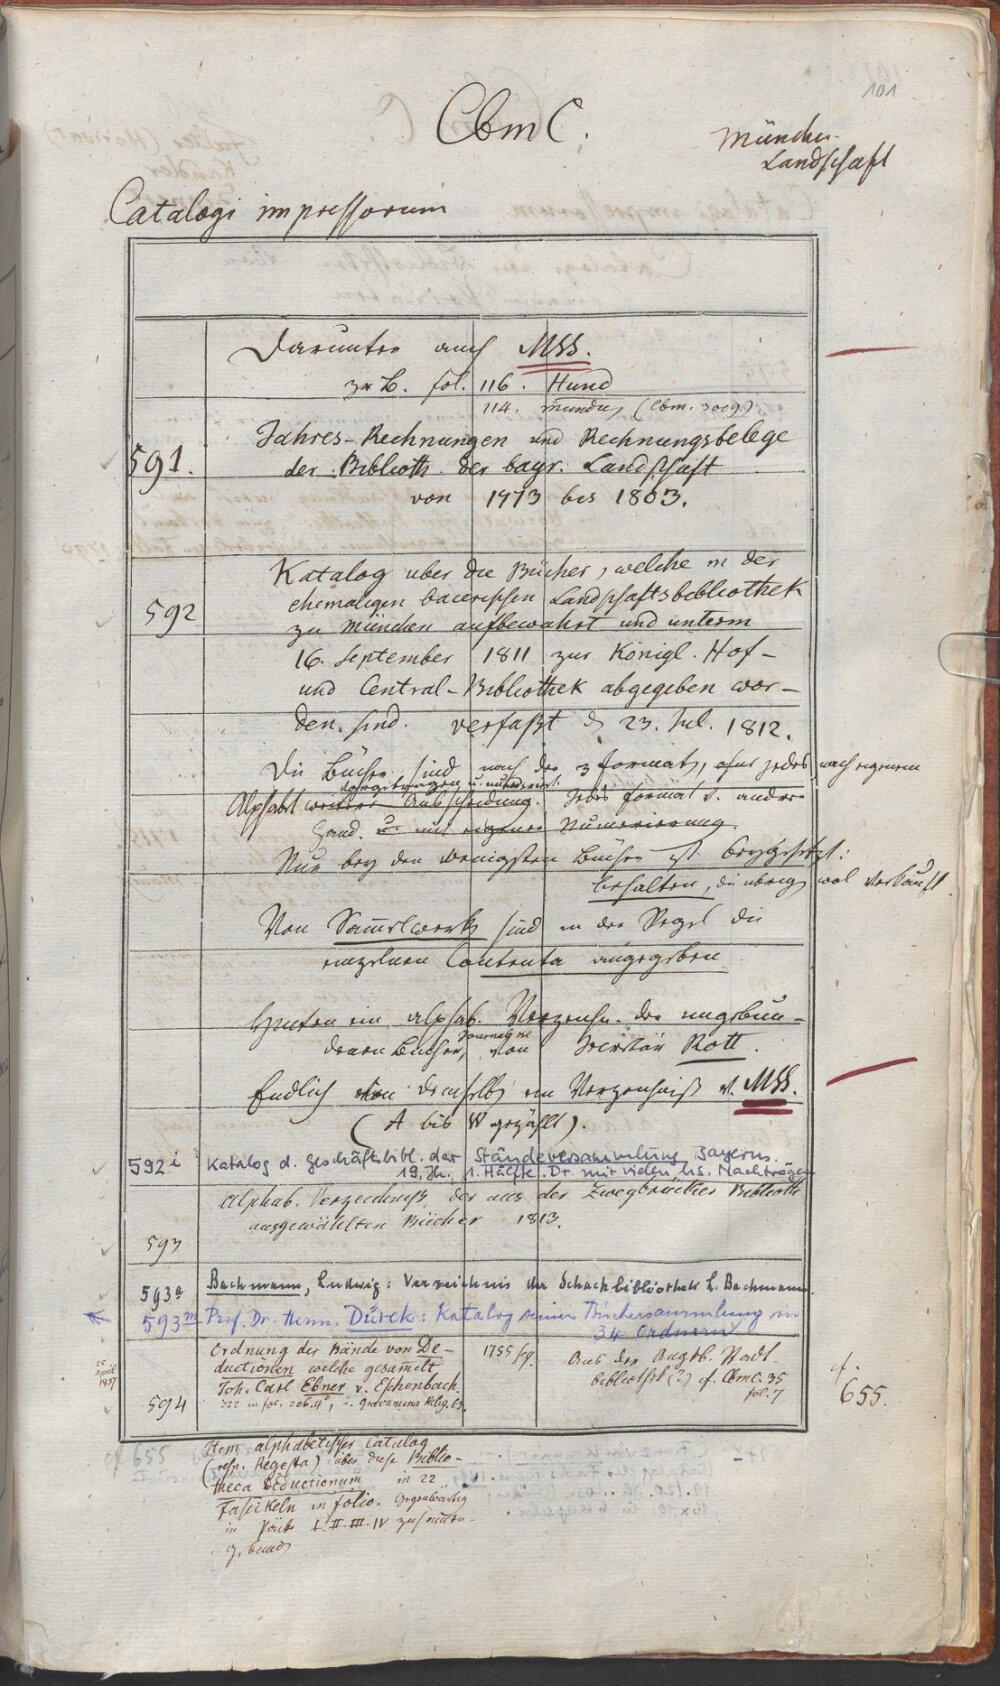 101
Cbm C.
München
Landschaft
Catalogi impressorum
Darunter auch MSS.
z. B. fol. 116. Hund
114. (Cbm. 3009)
591.
Jahres-Rechnungen und Rechnungsbelege
der Biblioth. der bayr. Landschaft
von 1773 bis 1803.
592
Katalog uber die Bücher, welche in der
ehemaligen baierischen Landschaftsbibliothek
zu München aufbewahrt und unterm
16. September 1811 zur Königl. Hof-
und Central-Bibliothek abgegeben wor-
den sind. verfaßt d. 23. Jul. 1812.
Die Bücher sind nach den 3 Formaten, jedes nach eigenem
Alphabet Jedes Format v. andrer
Hand. u. mit eigener Numerierung
Nur bey den wenigsten Büchern ist beygesetzt:
behalten, die übrigen wol verkauft
Von Sammelwerken sind in der Regel die
einzelnen Contenta angegeben
Hinten ein alphab. Verzeichn. der ungebun-
denen Bücher, von Secretär Rott.
Endlich von demselben ein Verzeichniß v. MSS.
(A bis W gezählt).
592 i
Katalog d. Geschäftsbibl. der Ständeversammlung Bayerns.
19. Jh., 1. Hälfte. Dr. mit vielen hs. Nachträgen
593
Alphab. Verzeichniß der aus der Zweybrücker Biblioth.
ausgewählten Bücher 1813.
593a
Bachmann, Ludwig: Verzeichnis der Schachbibliothek L. Bachmann.
593 m
Prof. Dr. Herm. Dürck: Katalog seiner Büchersammlung in
34 Ordnern
25
April
1957
594
Ordnung der Bände von De-
ductionen welche gesamelt
Joh. Carl Ebner v. Eschenbach
322 in fol. 206. 4°, u. Gravamina Relig. 63.
1755 sq.
Aus der Augsb. Stadt-
bibliothek (?) cf. CbmC. 35
fol. 7
cf.
655.
Item alphabetischer Catalog
(resp. Regesta) über diese Biblio-
theca Deductionum in 22
Fasickeln in folio. Gegenwärtig
in I. II. III. IV zusamen-
gebunden